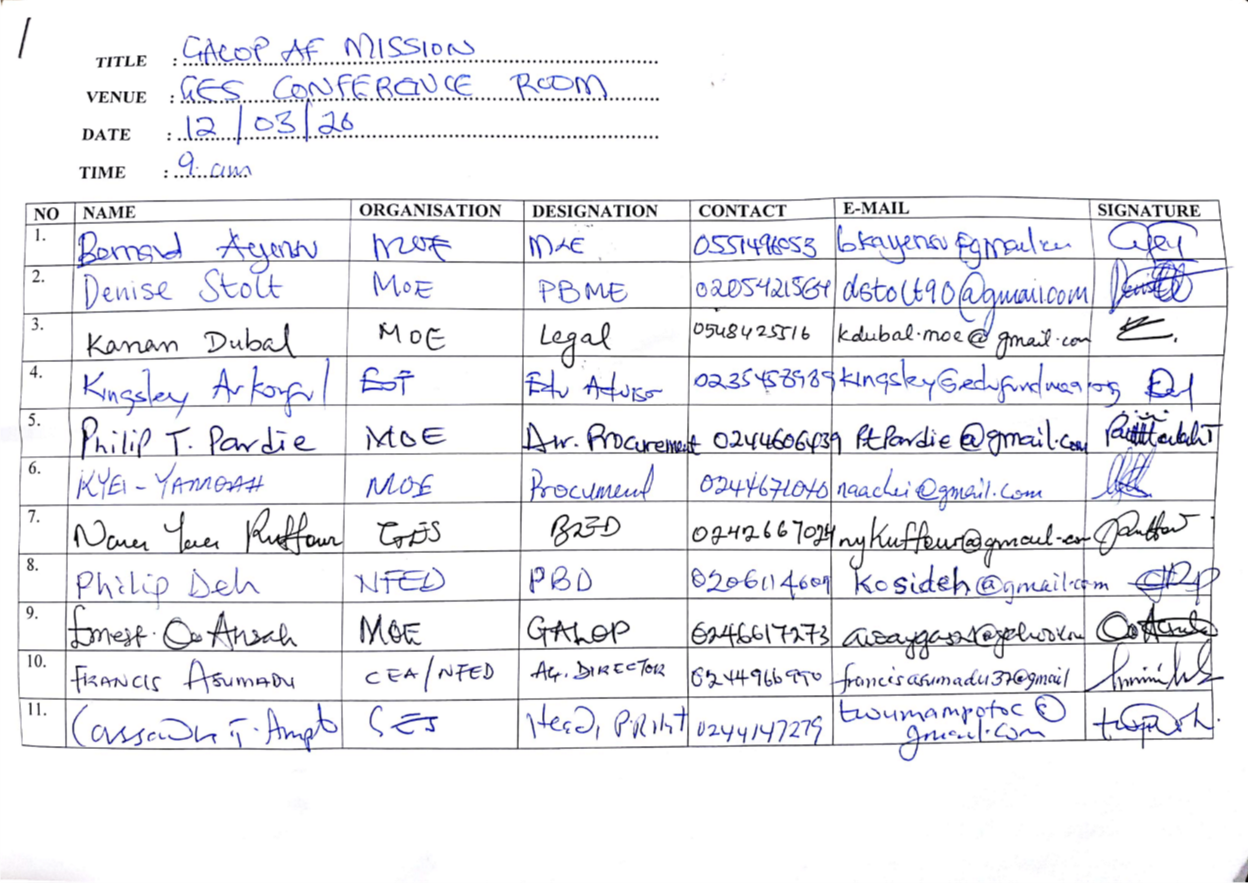 TITLE : GALOP AF MISSION
VENUE : GES CONFERENCE ROOM
DATE : 12/03/26
TIME : 9. am
NO NAME ORGANISATION DESIGNATION CONTACT E-MAIL SIGNATURE
1. Bernard Ayensu MOE M&E
2. Denise Stolt MOE PBME 0205421564 dstolt90@gmail.com
3. Kanan Dubal MOE Legal 0548425516 kdubal.moe@gmail.com
4. Kingsley Arkorful EOF Edu Advisor
5. Philip T. Pardie MOE Dir. Procurement 0244606439 ptpardie@gmail.com
6. KYEI-YAMOAH MOE Procument 0244671040 naachei@gmail.com
7. Nana Yaw Kuffour GES nykuffour@gmail.com
8. Philip Deh NFED PBD kosideh@gmail.com
9. Ernest Ansah MOE GALOP 0246617273
10. FRANCIS ASUMADU CEA/NFED Ag. DIRECTOR 0244966990 francisasumadu37@gmail
11. T. GES Head, 0244147279 twumampofoc@
gmail.com